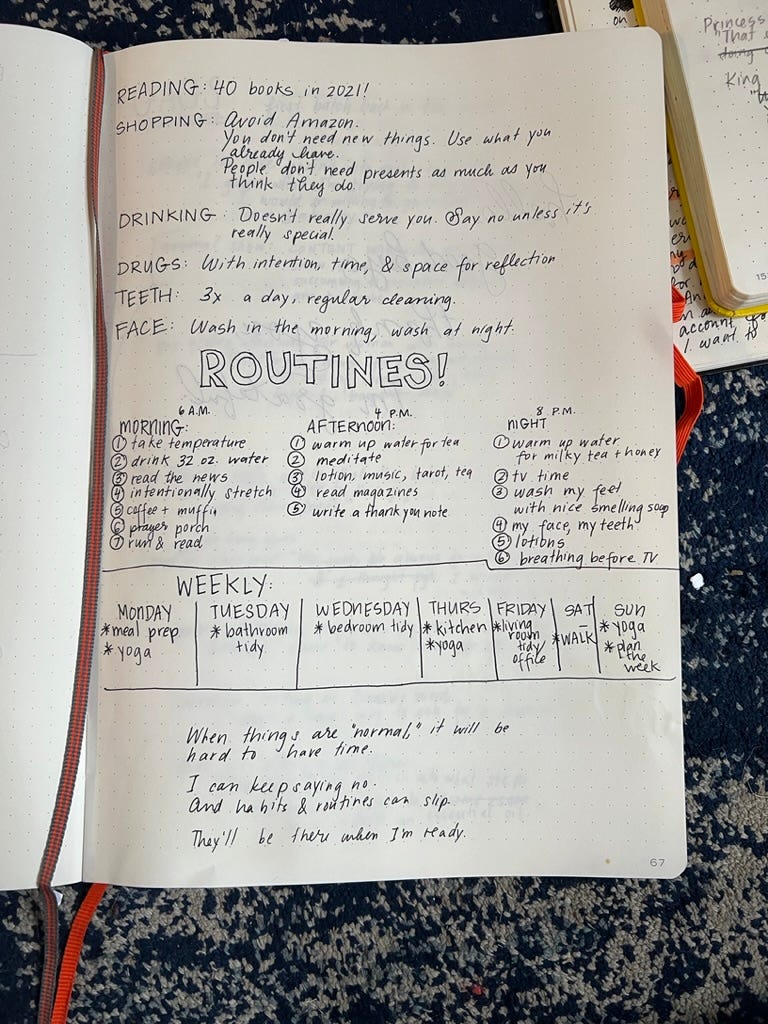 READING: 40 books in 2021!
SHOPPING: Avoid Amazon.
You don't need new things. Use what you
already have.
People don't need presents as much as you
think they do.
DRINKING: Doesn't really serve you. Say no unless it's
really special.
DRUGS: With intention, time, & space for reflection
TEETH: 3x a day, regular cleaning.
FACE: Wash in the morning, wash at night.
ROUTINES!
6 A.M.
MORNING:
① take temperature
② drink 32 oz. water
③ read the news
④ intentionally stretch
⑤ coffee + muffin
⑥ prayer porch
⑦ run & read
4 P.M.
AFTERNOON:
① warm up water for tea
② meditate
③ lotion, music, tarot, tea
④ read magazines
⑤ write a thank you note
8 P.M.
NIGHT
① warm up water
for milky tea + honey
② tv time
③ wash my feet
with nice smelling soap
④ my face, my teeth
⑤ lotions
⑥ breathing before TV
WEEKLY:
MONDAY
* meal prep
* yoga
TUESDAY
* bathroom
tidy
WEDNESDAY
* bedroom tidy
THURS
* kitchen
* yoga
FRIDAY
* living
room
tidy/
office
SAT
* WALK
SUN
* yoga
* plan
the
week
When things are "normal," it will be
hard to have time.
I can keep saying no.
And habits & routines can slip.
They'll be there when I'm ready.
67
on
Princess
"That
doing
King
15
account
I want to